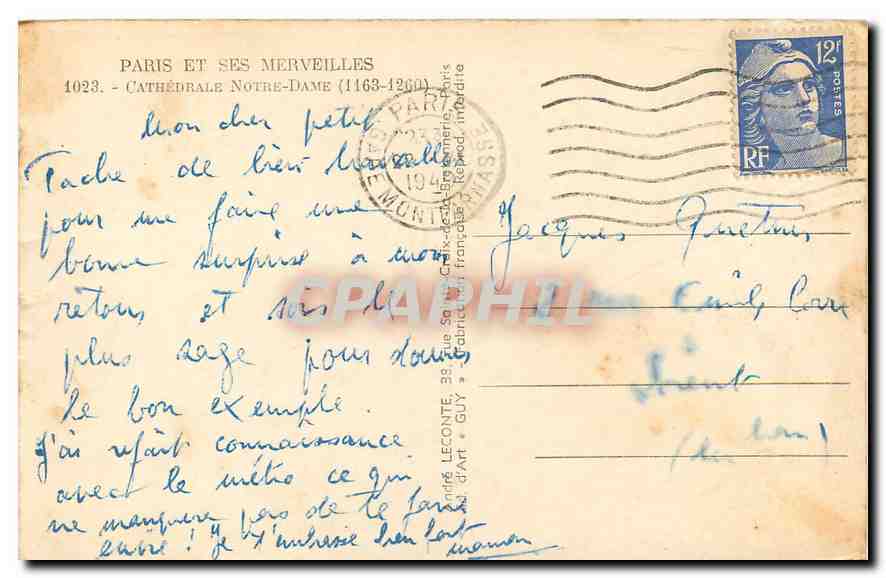 PARIS ET SES MERVEILLES
1023. - CATHÉDRALE NOTRE-DAME (1163-1260)
Mon cher petit
Tache de bien travailler
pour me faire une
bonne surprise à mon
retour et sois le
plus sage pour donner
le bon exemple.
J'ai refait connaissance
avec le métro ce qui
ne manquera pas de te faire
envie ! Je t'embrasse bien fort
maman
André LECONTE, 38, rue Sainte-Croix-de-la-Bretonnerie, Paris
d'Art " GUY " Fabrication française. Reprod. interdite
PARIS
GARE MONTPARNASSE
194
12F
POSTES
RF
Jacques
rue Emile
à
Lorient
CPAPHIL